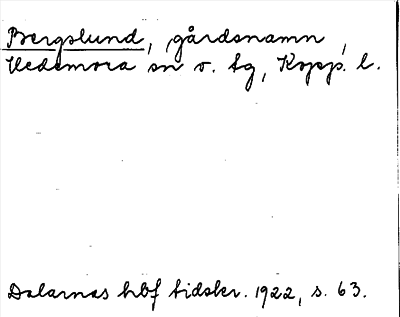 Bergslund, gårdsnamn,
Hedemora sn o. tg, Kopp. l.
Dalarnas hbf tidskr. 1922, s. 63.